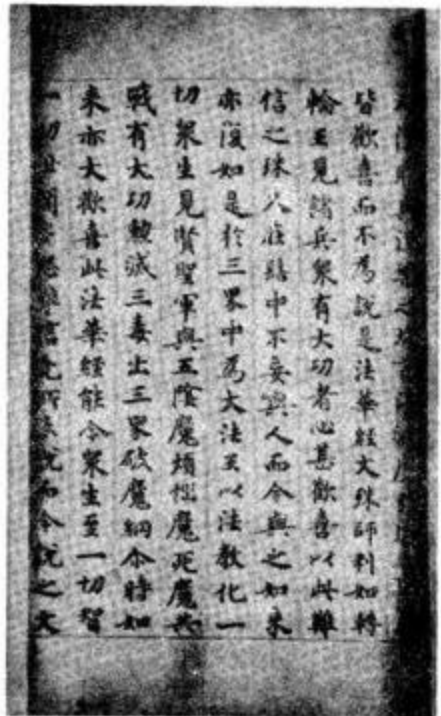 皆歡喜而不為說是法華經文殊師利如轉
輪王見諸兵衆有大功者心甚歡喜以此難
信之珠久在髻中不妄與人而今與之如來
亦復如是於三界中為大法王以法教化一
切衆生見賢聖軍與五陰魔煩惱魔死魔共
戰有大功勳滅三毒出三界破魔網尒時如
來亦大歡喜此法華經能令衆生至一切智
一切世間多怨難信先所未說而今說之文